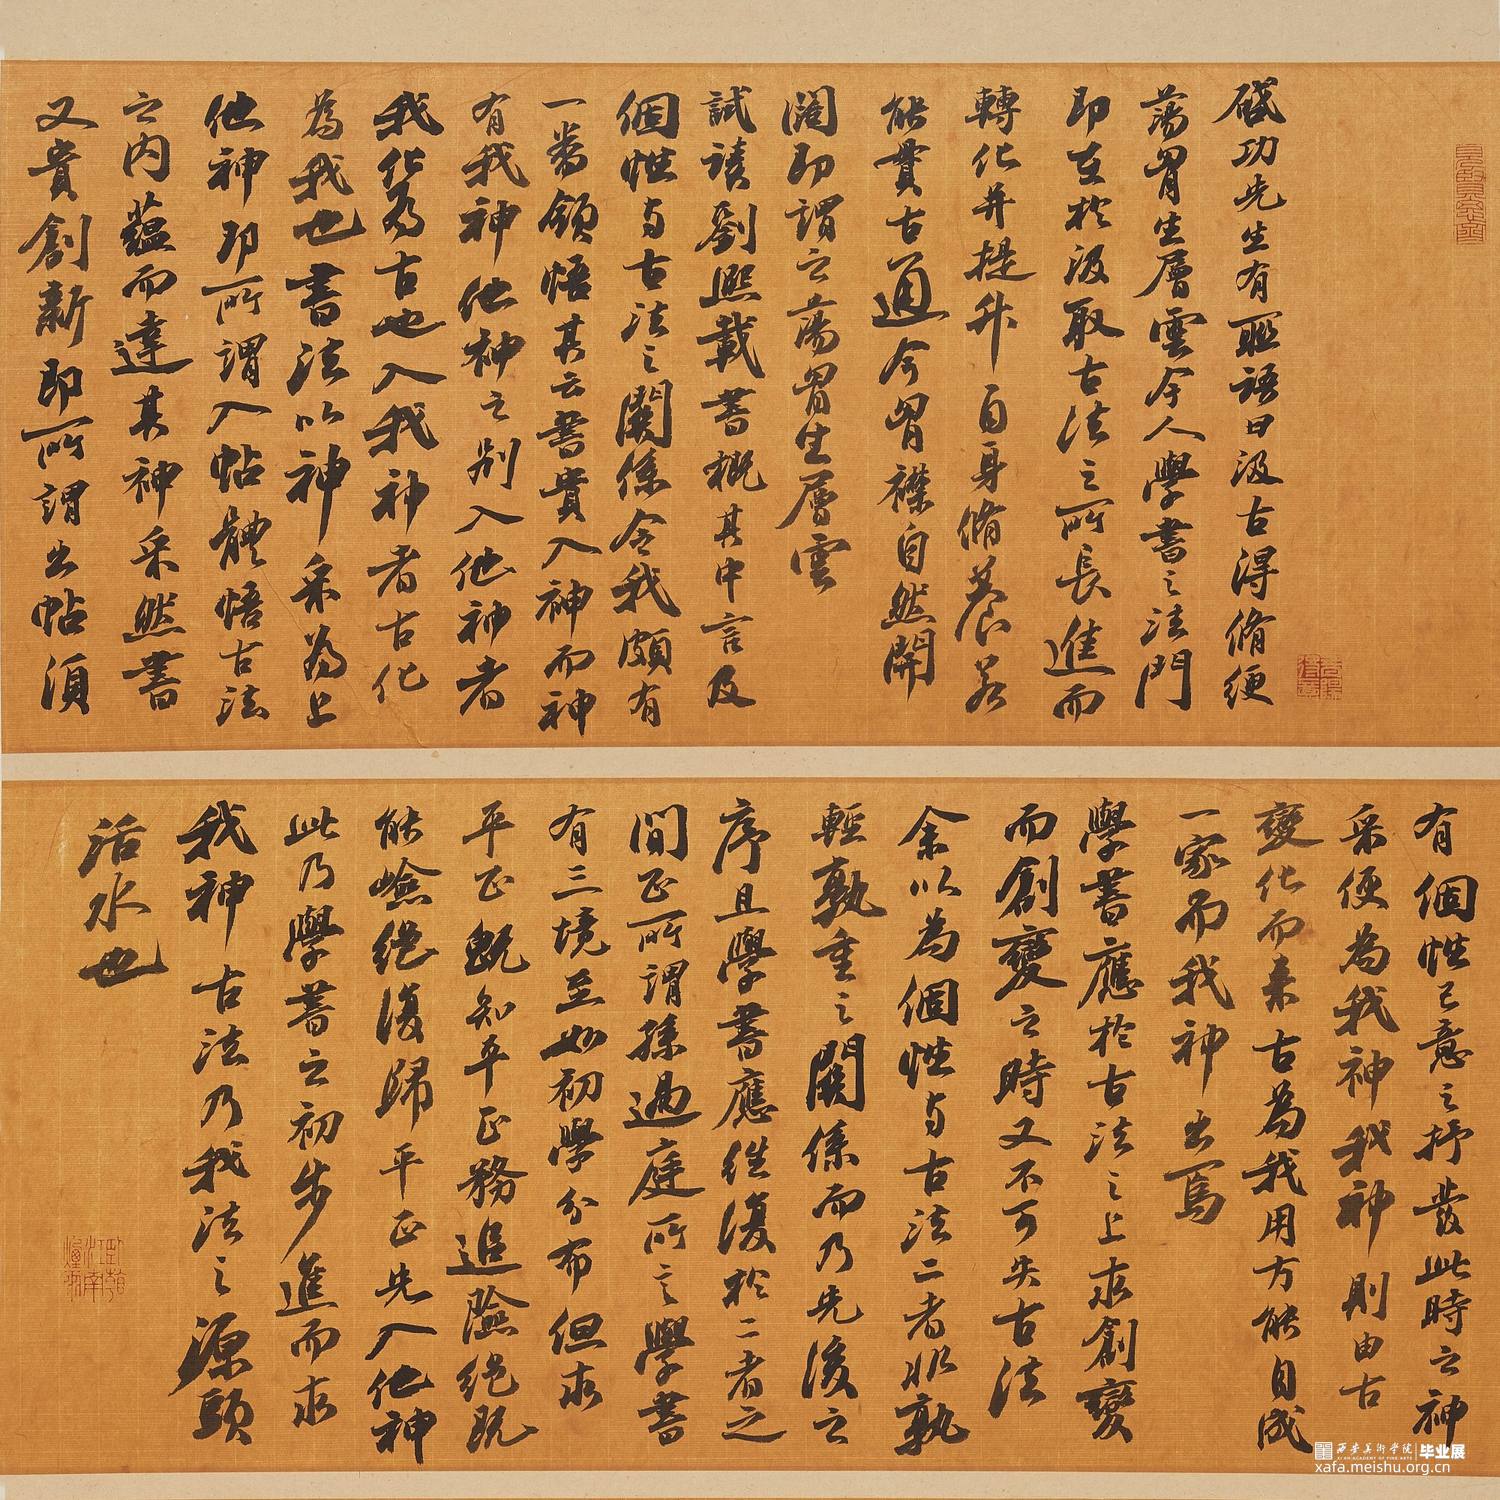 啟功先生有聯語曰汲古得脩綆
蕩胷生層雲今人學書之法門
即在於汲取古法之所長進而
轉化并提升自身脩養若
能貫古通今胷襟自然開
闊即謂之蕩胷生層雲
試讀劉熙載書概其中言及
個性与古法之關係令我頗有
一番領悟其云書貴入神而神
有我神他神之別入他神者
我化為古也入我神者古化
為我也書法以神采為上
他神即所謂入帖體悟古法
之內蘊而達其神采然書
又貴創新即所謂出帖須
有個性己意之抒發此時之神
采便為我神我神則由古
變化而来古為我用方能自成
一家而我神出焉
學書應於古法之上求創變
而創變之時又不可失古法
余以為個性与古法二者非孰
輕孰重之關係而乃先後之
序且學書應往復於二者之
間正所謂孫過庭所言學書
有三境至如初學分布但求
平正既知平正務追險绝既
能嶮绝復歸平正先入他神
此乃學書之初步進而求
我神古法乃我法之源頭
活水也
西安美術學院 毕业展
XI'AN ACADEMY OF FINE ARTS
xafa.meishu.org.cn